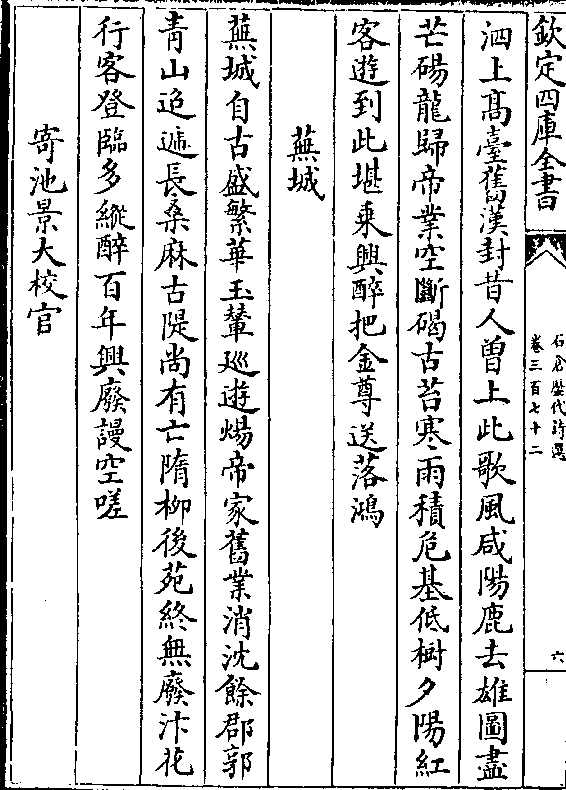 欽定四庫全書
石倉歷代詩選
卷三百七十二
六
泗上髙臺舊漢封昔人曽上此歌風咸陽鹿去雄圖盡
芒碭龍歸帝業空斷碣古苔寒雨積危基低樹夕陽紅
客遊到此堪乗興醉把金尊送落鴻
蕪城
蕪城自古盛繁華玉輦巡逰煬帝家舊業消沈餘郡郭
青山迢遞長桑麻古隄尚有亡隋柳後苑終無廢汴花
行客登臨多縱醉百年興廢謾空嗟
寄池景大校官